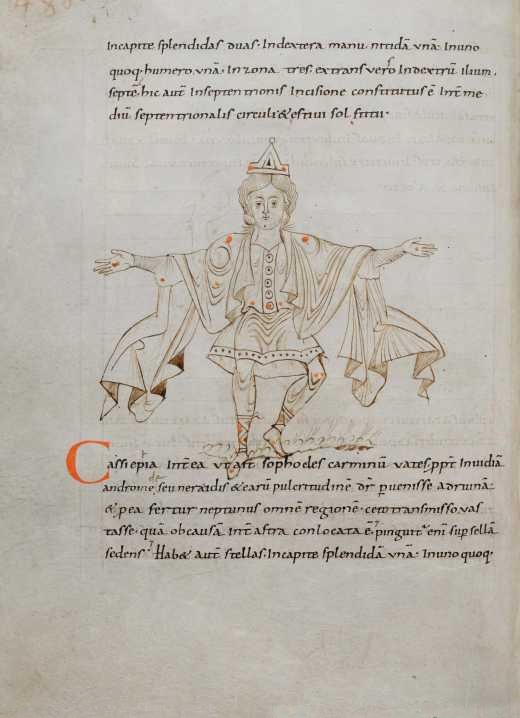 Incapite splendidas duas. Indextera manu nitidā unā. Inuno
quoq. humero unā. In zona tres. extrans uero Indextrū ilium.
septē. hic autē Inseptentrionis Incisione constitutus ē Int me
diū septentrionalis circuli & estiui sol stitii.
Cassiepia Int ea ut ait sophocles carminū uates. ppt Inuidiā
andromede seu neraidis & earū pulcritudinē dr puenisse ad ruinā
& p ea fertur neptunus omnē regionē. ceto transmisso. uas
tasse. quā ob causā Int astra conlocata ē. pinguit eni sup sellā
sedens. Hab& autē stellas. Incapite splendidā unā. Inuno quoq.